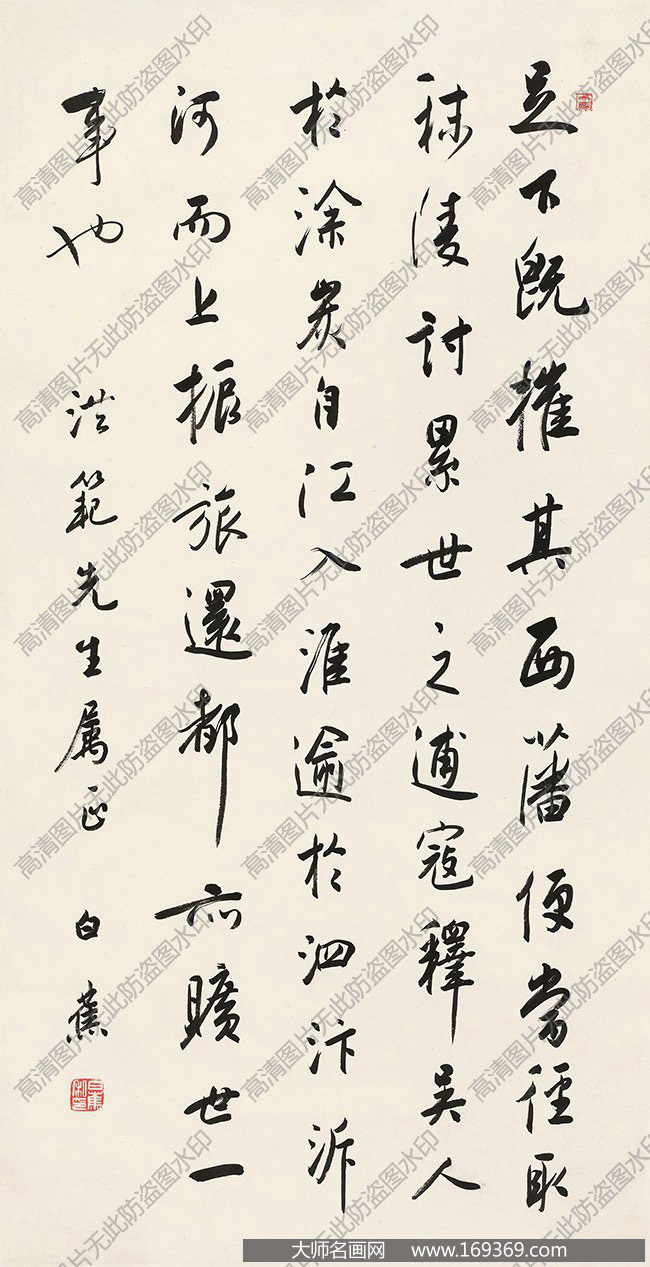 足下既摧其西藩便當徑取
秣陵討累世之逋寇釋吳人
於塗炭自江入淮逾於泗汴泝
河而上振旅還都亦曠世一
事也 洪範先生屬正 白蕉
大师名画网 www.169369.com
高清图片无此防盗图水印